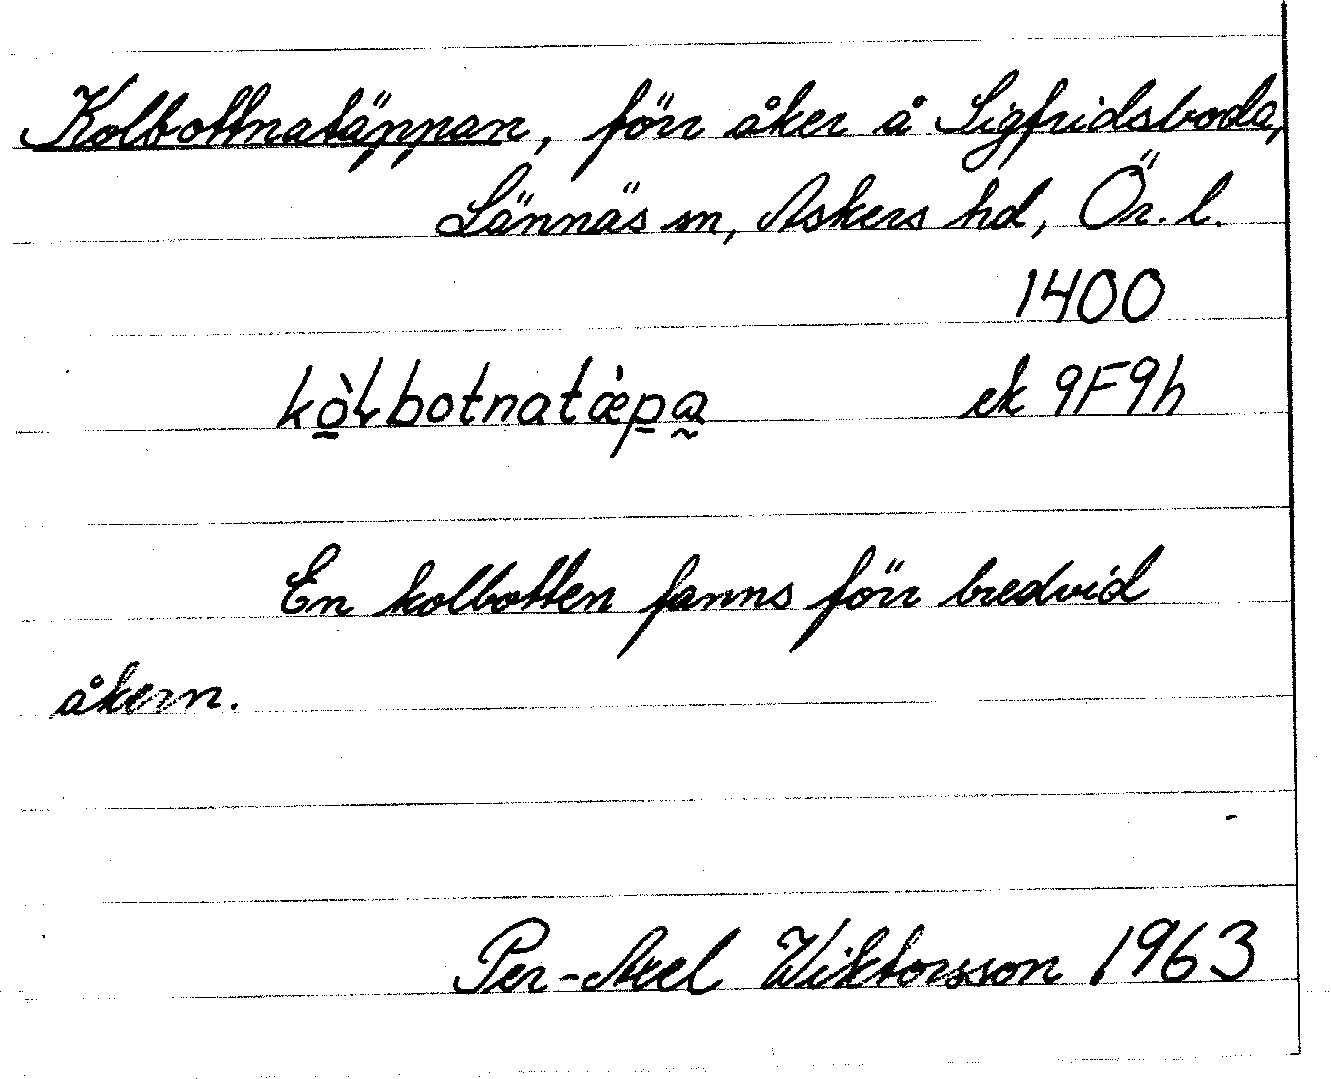 Kolbottnatäppan, förr åker å Sigfridsboda,
Lännäs sn, Askers hd, Ör. l.
1400
kò̱ɽbotnatæ̀p̱a̰ ek 9F9h
En kolbotten fanns förr bredvid
åkern.
Per-Axel Wiktorsson 1963